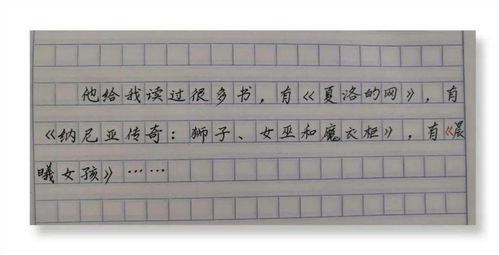 他给我读过很多书，有《夏洛的网》，有
《纳尼亚传奇：狮子、女巫和魔衣柜》，有《晨
曦女孩》……